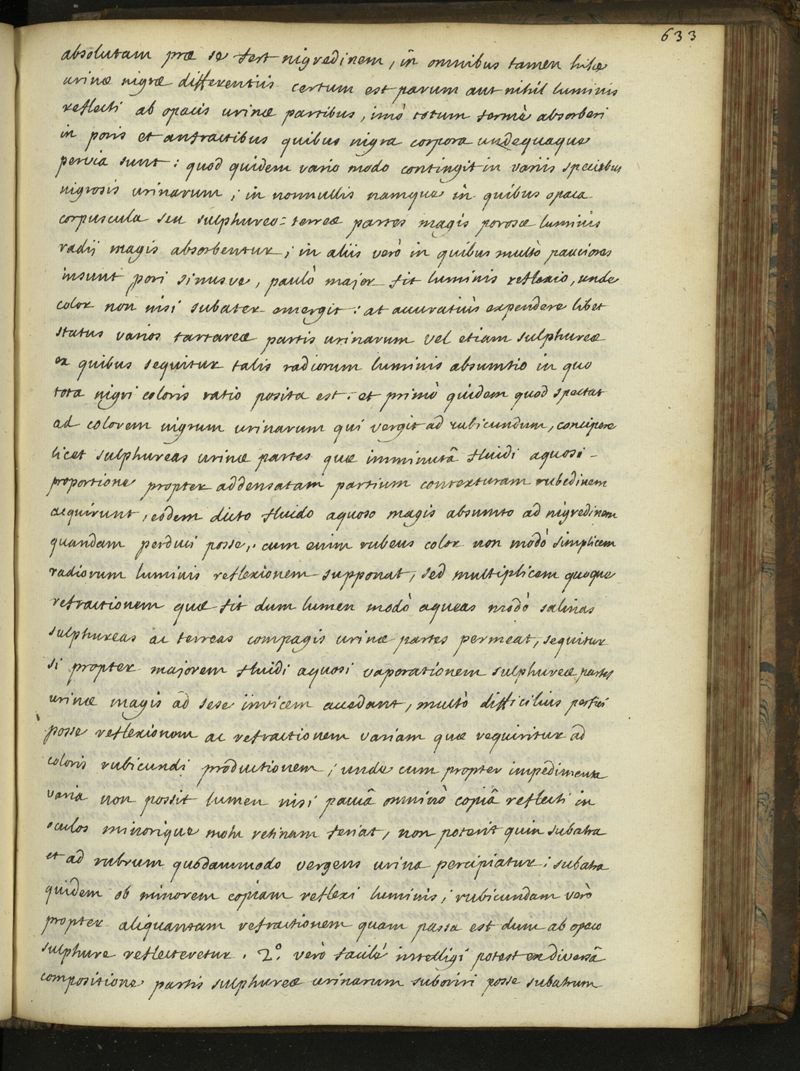 633
absolutam præ se fert nigredinem, in omnibus tamen hisce
urinæ nigræ differentiis certum est parum aut nihil luminis
reflecti ab opacis urinæ partibus, imò totum fermè absorberi
in poris et anfractibus quibus nigra corpora undequaque
pervia sunt: quod quidem vario modo contingit in variis speciebus
nigrosis urinarum; in nonnullis namque in quibus opaca
corpuscula seu sulphureo-terreæ partes magis porosæ luminis
radij magis absorbentur; in aliis verò in quibus multò pauciores
insunt pori sinusve, paulò major fit luminis reflexio, unde
color non nisi subater emergit: at accuratius expendere libet
status varios tartareæ partis urinarum vel etiam sulphureæ
ex quibus sequitur talis radiorum luminis absumtio in quo
tota nigri coloris ratio posita est: et primò quidem quod spectat
ad colorem nigrum urinarum qui vergit ad rubicundum, concipere
licet sulphureas urinæ partes quæ imminutâ fluidi aquosi
proportione propter addensatam partium contexturam rubedinem
acquirunt, eôdem dicto fluido aquoso magis absumto ad nigredinem
quandam perduci posse, cum enim rubeus color non modò simplicem
radiorum luminis reflexionem supponat, sed multiplicem quoque
refractionem quæ fit dum lumen modò aqueas modò salinas
sulphureas ac terreas compagis urinæ partes permeat, sequitur
si propter majorem fluidi aquosi vaporationem sulphureæ partes
urinæ magis ad sese invicem accedant, multò difficilius perfici
posse reflexionem ac refractionem variam quæ requiritur ad
coloris rubicundi productionem; unde cum propter impedimenta
varia non possit lumen nisi paucâ omninò copiâ reflecti in
oculos minorique motu retinam feriat, non poterit quin subatra
et ad rubrum quodammodo vergens urina percipiatur; subatra
quidem ob minorem copiam reflexi luminis; rubicundam verò
propter aliquantam refractionem quam passa est dum ab opaco
sulphure reflecteretur. 2.º verò facilè intelligi potest ex diversâ
compositione partis sulphureæ urinarum suboriri posse subatrum